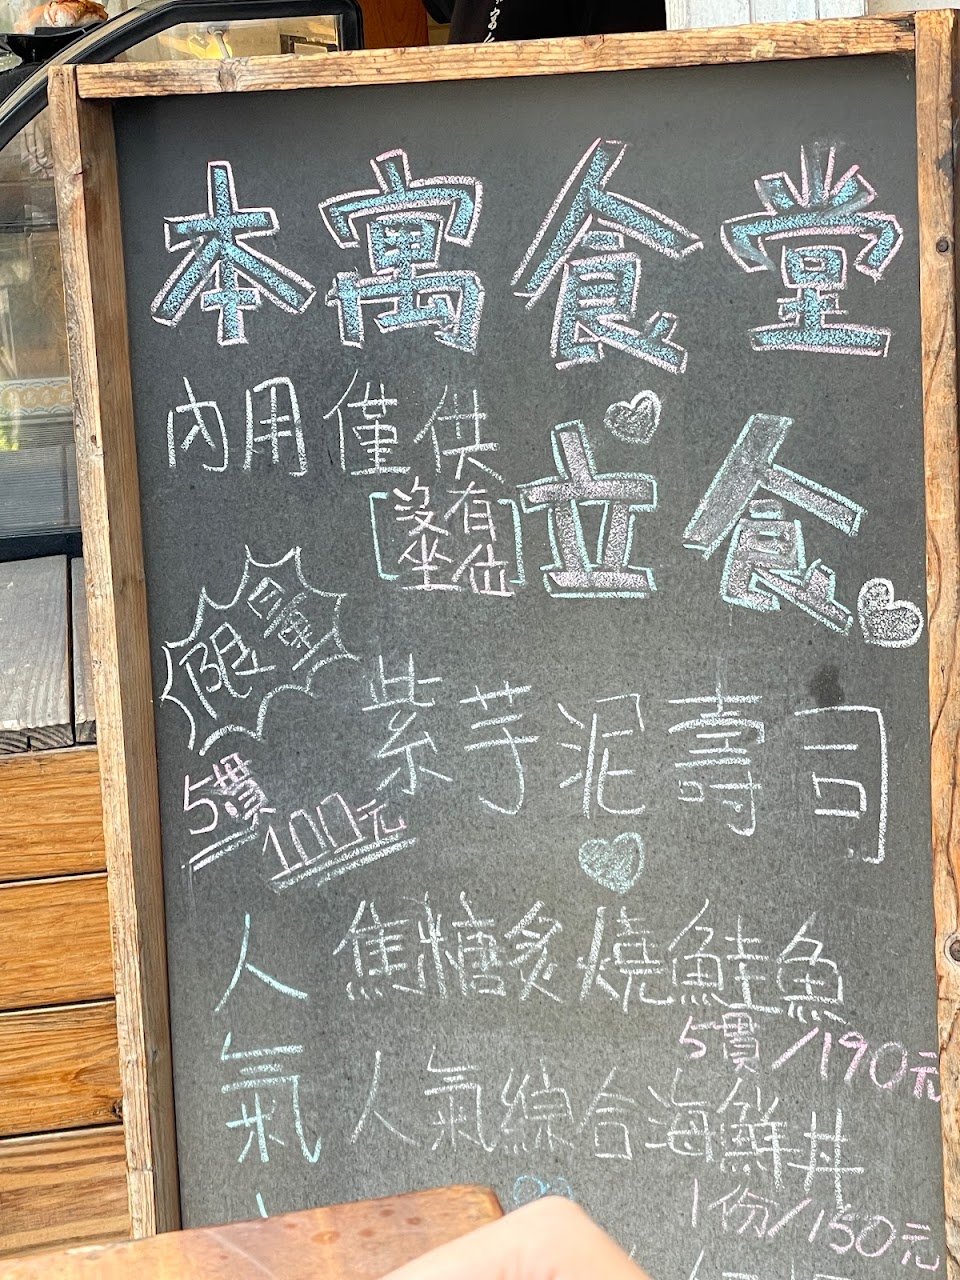 本寓食堂
內用僅供
[沒有坐位]
立食
限量
紫芋泥壽司
5貫
100元
人氣
焦糖炙燒鮭魚
5貫/190元
人氣綜合海鮮丼
1份/150元